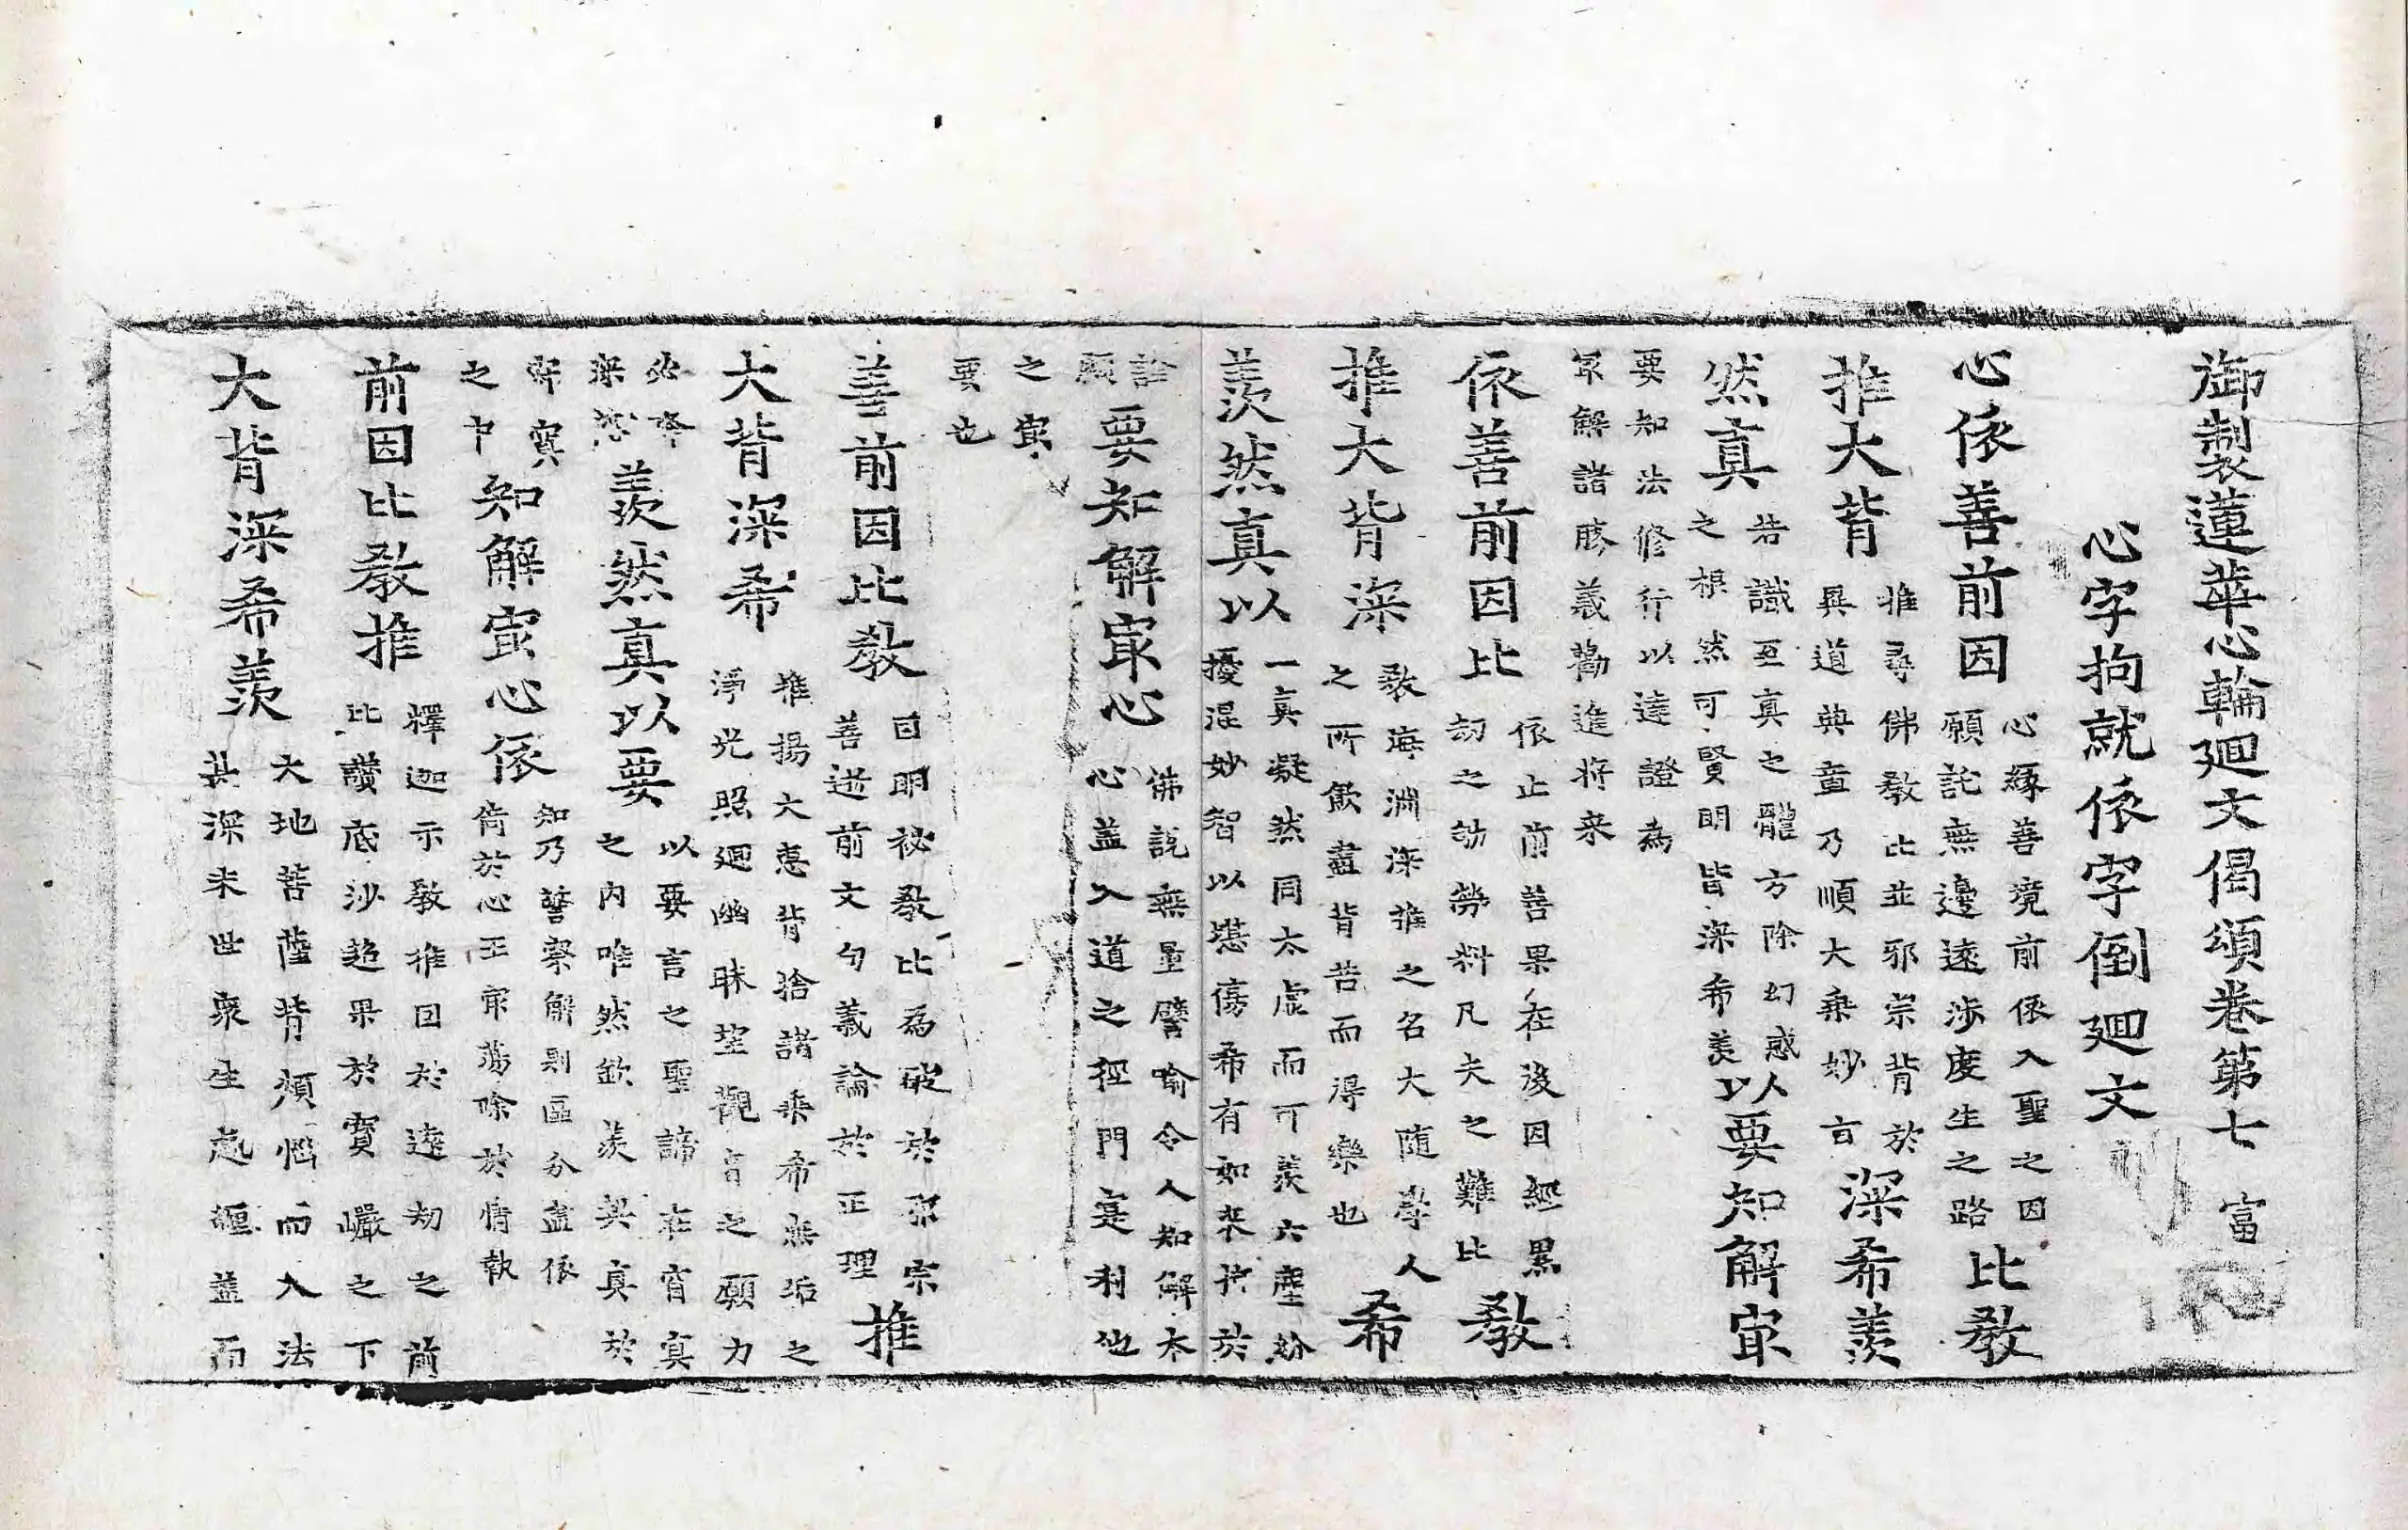 御製蓮華心輪廻文偈頌卷第七 富
心字拘就依字倒廻文
心依善前因 心緣善境前依入聖之因 願託無邊遠涉度生之路 比教
推大背 推尋佛教比並邪宗背於 異道典章乃順大乘妙言 深希羨
然真 若識至真之體方除幻惑 之根然可賢明皆深希羨 以要知解㝡
要知法修行以達證為 㝡解諸勝義勸進將來
依善前因比 依止前善果在後因經累 劫之劬勞料凡夫之難比 教
推大背深 教海淵深推之名大随學人 之所飲盡背苦而得樂也 希
羨然真以 一真凝然同太虛而可羨六塵紛 擾混妙智以堪傷希有如來於
詮 願 要知解㝡心 佛說無量譬喻令人知解太 心盖入道之徑門寔利他
之㝡 要也
善前因比教 自明祕教比為破於邪宗 善遊前文句義論於正理 推
大背深希 推揚大惠背捨諸乘希無垢之 淨光照廻幽昧望觀音之願力
羨然真以要 以要言之聖諦在宵真 之内唯然欽羨與真於
解寘 之中 知解㝡心依 知乃詧察解則區分盖依 倚於心王㝡蕩除於情執
前因比教推 釋迦示教推因於遠劫之前 比讚底沙超果於寶巖之下
大背深希羨 大地菩薩背煩惱而入法 其深末世衆生處纏盖而